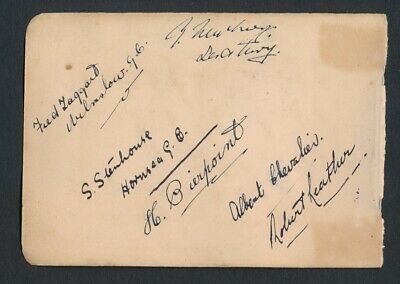 Fred Taggart
Wilmslow. G.C.
S Stenhouse
Hornsea G.C.
H. Pierpoint
Albert Chevalier.
Robert Leather